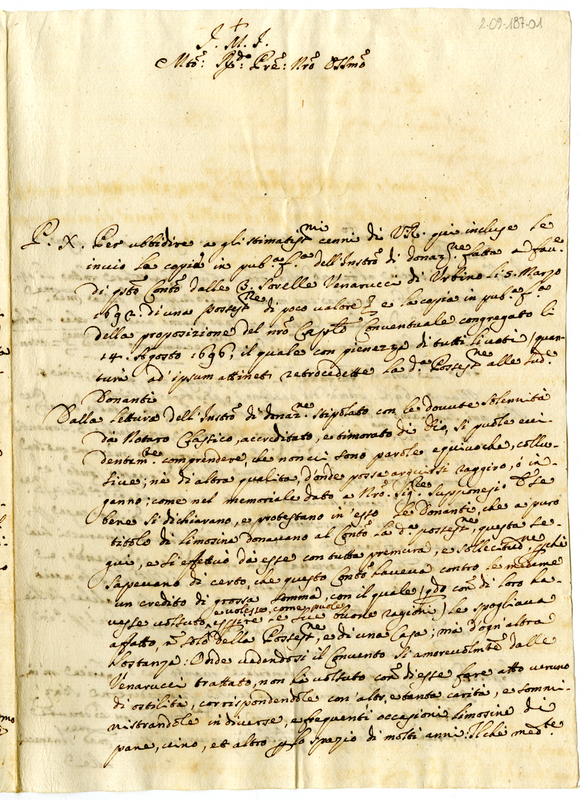 2-09-187-01
J. M. J.
Mto: Rdo: Pre: Nro Ossmo
P. X. Per ubbidire a gli stimatissmi cenni di V.R. qui incluse le
invio la copia in pub.a f.a dell'Instro di donaz.ne fatta a fav.e
di qsto Conto dalle 3. Sorelle Venarucci di Urbino li 5. Marzo
1692 di una Possess.ne di poco valore, e la copia in pub.a f.a
della proposizione del nro Caplo Conventuale congregato li
14. Agosto 1696, il quale con pienezza di tutti li voti (quan-
tum ad ipsum attinet) retrocedette la d.a Possess.ne alle sud.e
Donanti
Dalla lettura dell'Instro di donaz.ne stipolato con le dovute solennità
da Notaro Clastico, accreditato, e timorato di Dio, si puole evi-
dentem.te comprendere, che non ci sono parole equivoche, collu-
sive, ne di altra qualità, d'onde possa arguirsi raggiro, ò in-
ganno; come nel memoriale dato a Nro Sig.re supponesi
bene si dichiarano, e protestano in esso le Donanti, che a puro
titolo di limosina donavano al Conto la d.a possess.ne, questa se-
guì, e si effettuò da esse con tutta premura, e sollecitud.ne
sapevano di certo, che questo Conto haveva contro le medeme
un credito di grossa somma, con il quale (qdo con di loro ha-
vesse voluto, e volesse, come puole, essere le sue buone ragioni) le spogliava
affatto, n solo della Possess.ne, e di una Casa; mà d'ogn'altra
sostanza. Onde vedendosi il Convento sì amorevolmte dalle
Venarucci trattato, non hà voltuto con di esse fare atto veruno
di ostilità, corrispondendole con altr e tanta carità, e sommi-
nistrandole in diverse, e frequenti occasioni limosine di
pane, vino, et altro spazio di molti anni. Ilche med.te